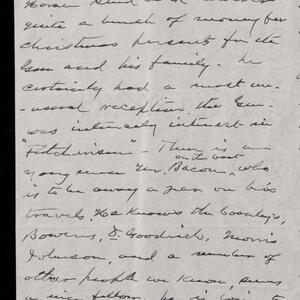 quite a bunch of money for
Christmas presents for the
Gov and his family. He
certainly had a most un-
usual reception. the Gov
was intensely interest in
" There is a
on the boat
young man Mr. Bacon, who
is to be away a year on his
travels. He knows the Cooleys,
Bowens, D. Goodrich, Morris
Johnson, and a number of
other people we know, seems
a nice fellow. He is